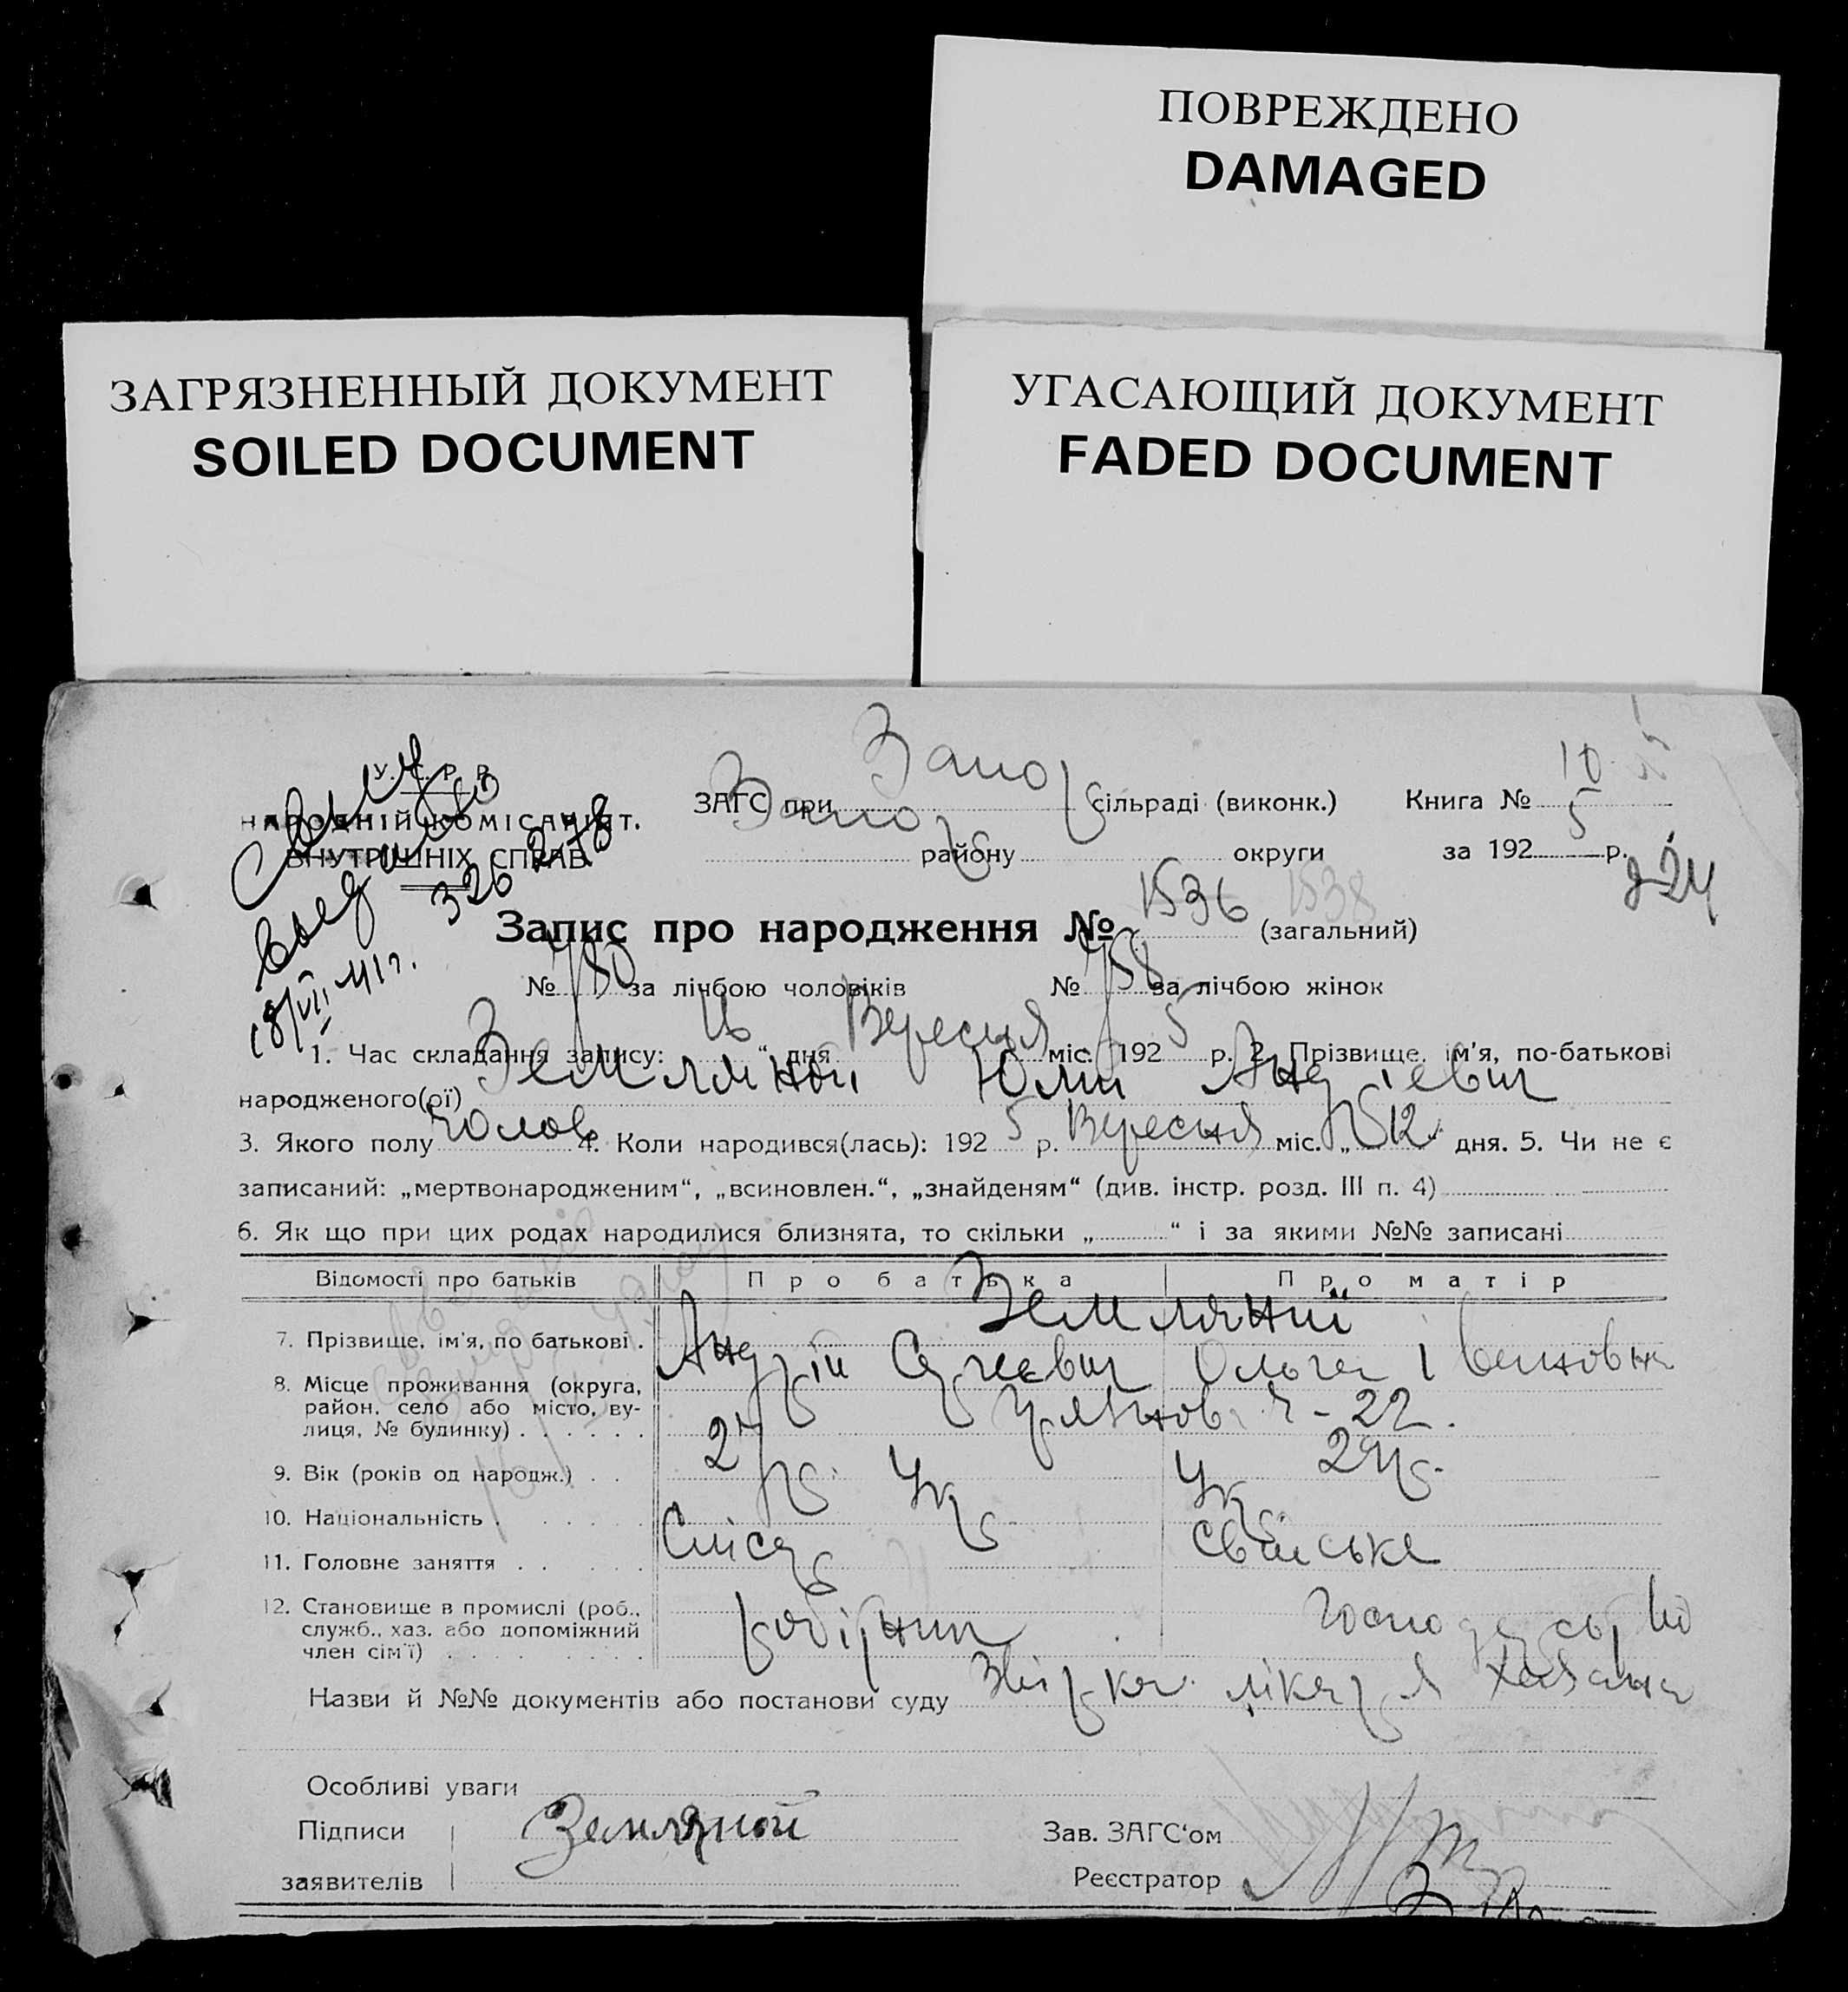 ПОВРЕЖДЕНО
DAMAGED
ЗАГРЯЗНЕННЫЙ ДОКУМЕНТ
SOILED DOCUMENT
УГАСАЮЩИЙ ДОКУМЕНТ
FADED DOCUMENT
У. С. Р. Р.
НАРОДНІЙ КОМІСАРІЯТ.
ВНУТРІШНІХ СПРАВ
326 278
18/VII 41 г.
ЗАГС при Запор сільраді (виконк.) Книга № 10
Запор району округи за 192 5 р.
224
Запис про народження № 1536 1538 (загальний)
№ 780 за лічбою чоловіків № 758 за лічбою жінок
1. Час складання запису: 16 " дня Вересня міс. 192 5 р. 2. Прізвище, ім'я, по-батькові
народженого(ої) Земляной Юлій Андрієвич
3. Якого полу Чолов 4. Коли народився(лась): 192 5 р. Вересня міс. „ 12 дня. 5. Чи не є
записаний: „мертвонародженим“, „всиновлен.“, „знайденям“ (див. інстр. розд. III п. 4)
6. Як що при цих родах народилися близнята, то скільки „ “ і за якими №№ записані
Відомості про батьків Про батька Про матір
Земляний
7. Прізвище, ім'я, по батькові . Андрій Сергієвич Ольга Івановна
8. Місце проживання (округа, район, село або місто, вулиця, № будинку) . . . . . . 22.
9. Вік (років од народж.) . . 27 р. 24 р.
10. Національність . Укр Укр
11. Головне заняття . . Слюсар свійське
12. Становище в промислі (роб., служб., хаз. або допоміжний член сім'ї) робітник господарство
Назви й №№ документів або постанови суду лікаря Хазана
Особливі уваги
Підписи Земляной Зав. ЗАГС'ом
заявителів Реєстратор